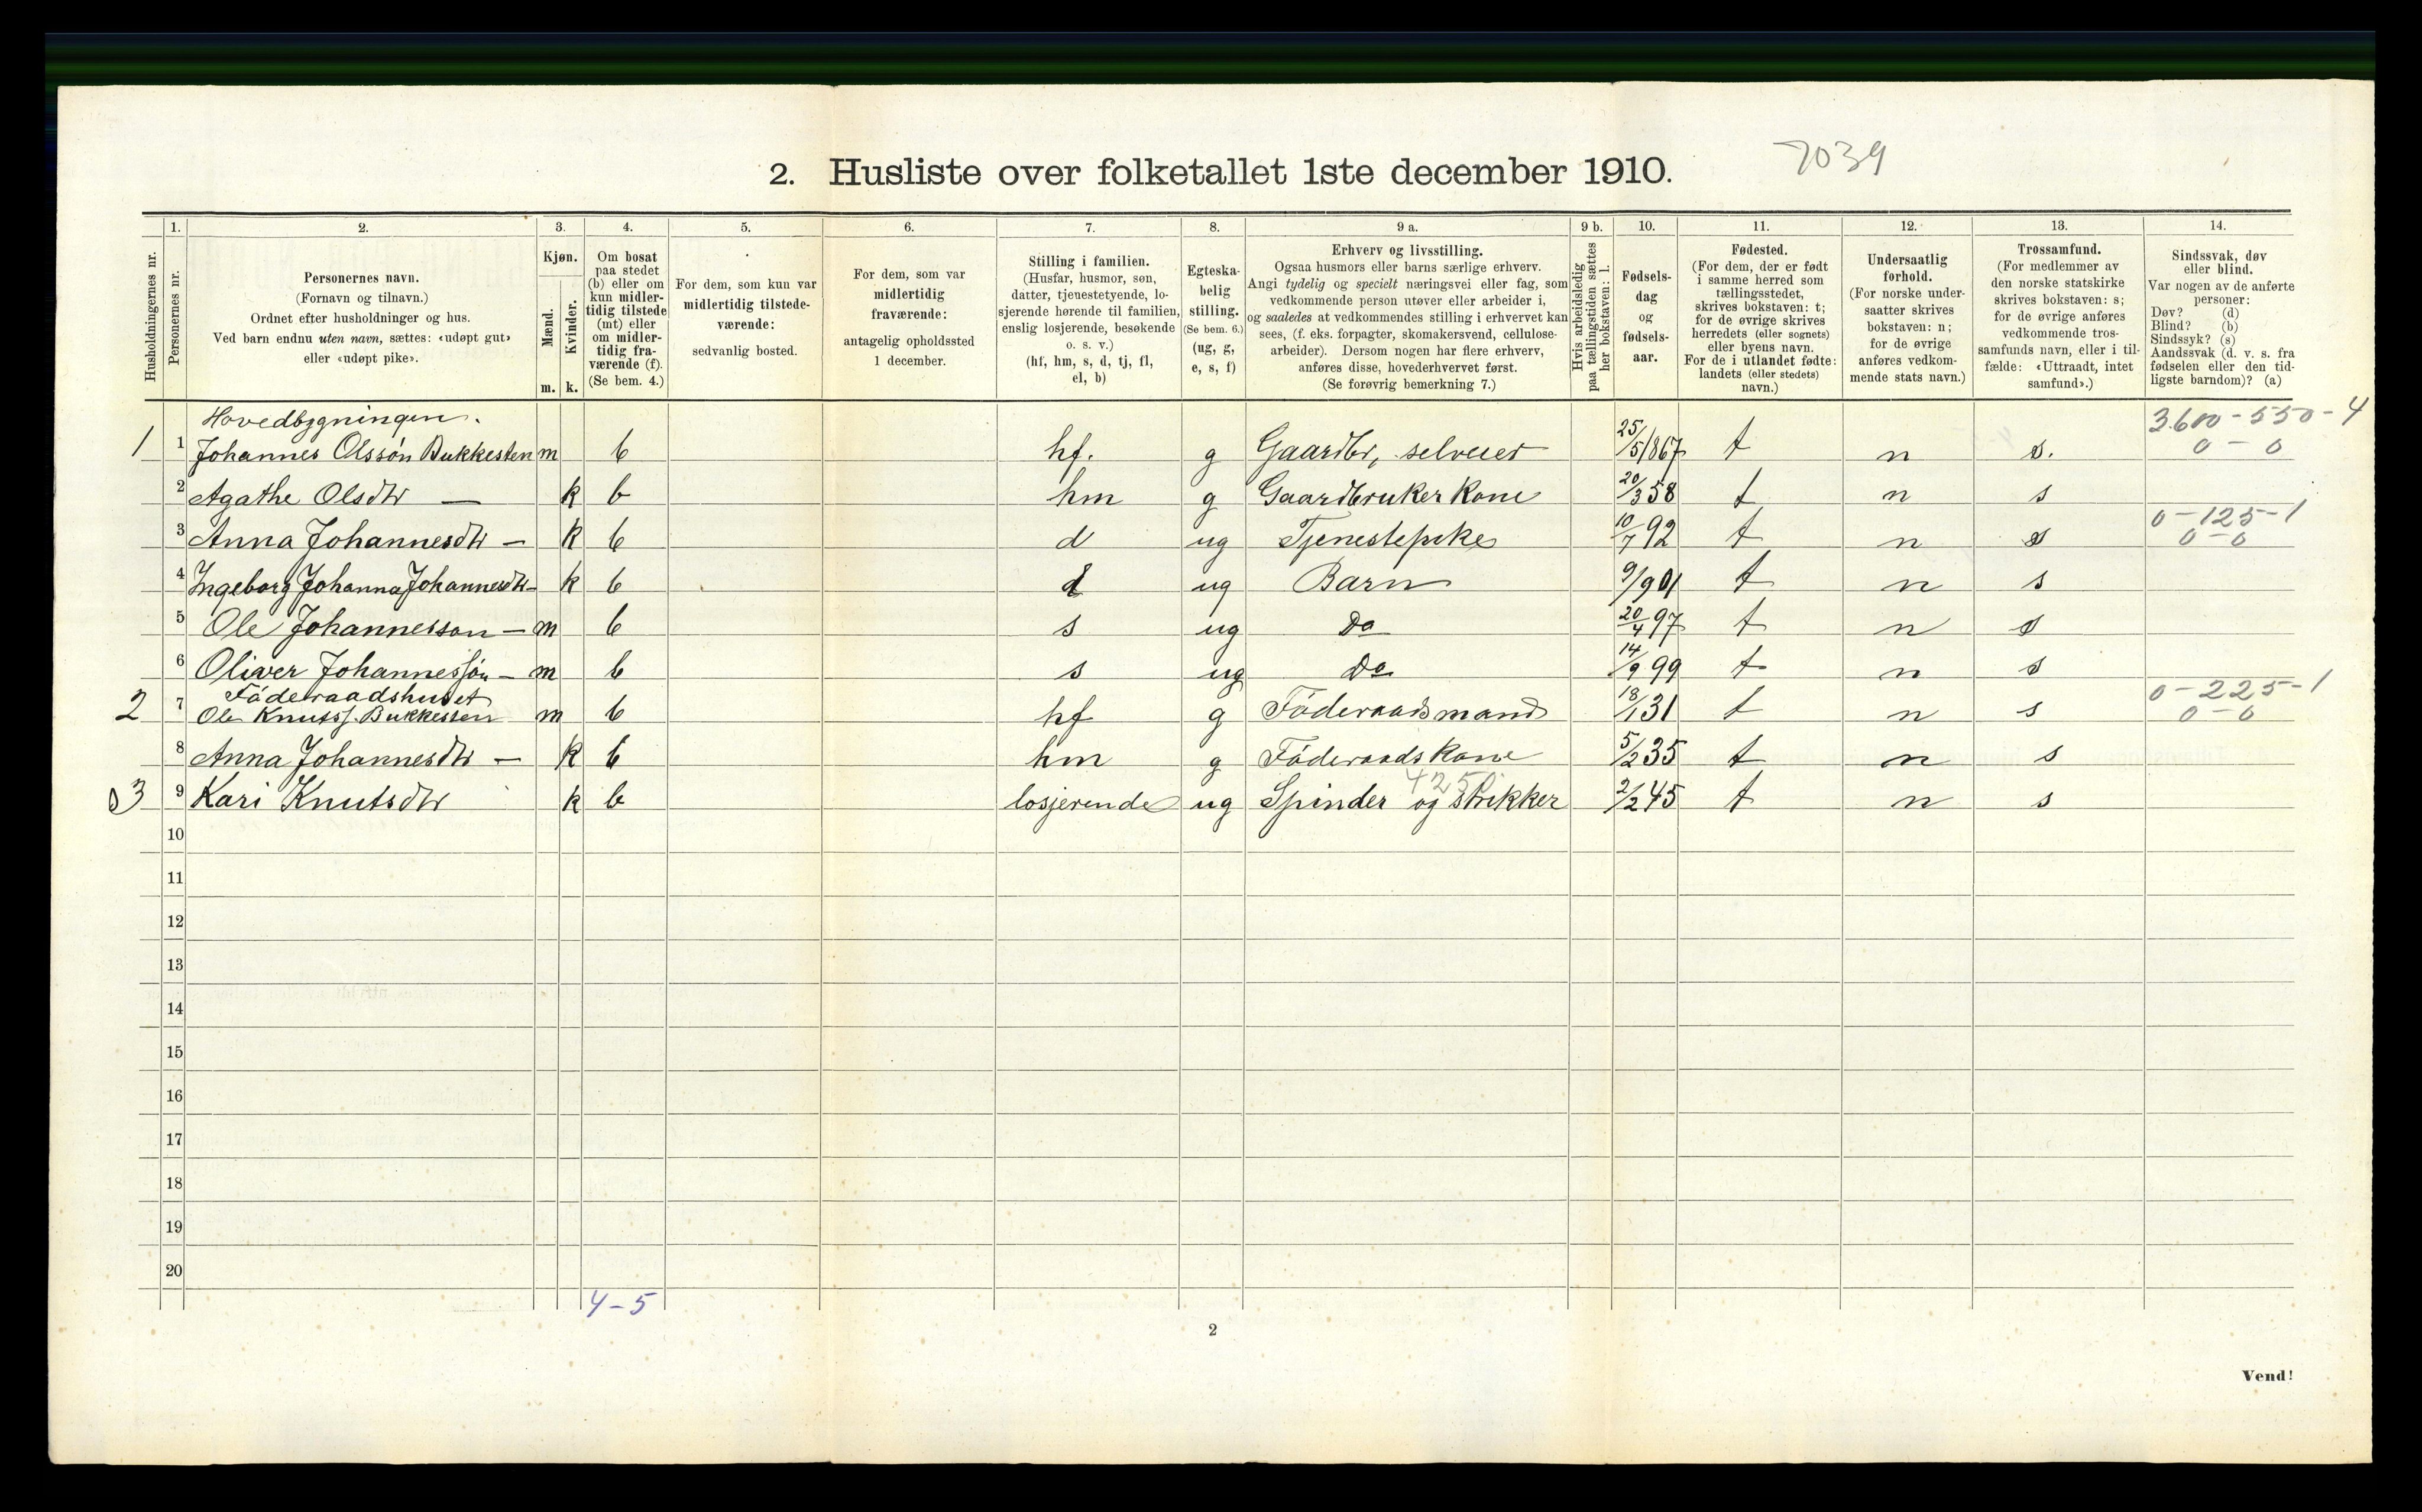 2. Husliste over folketallet 1ste december 1910.
7039
Husholdningernes nr.
1.
Personernes nr.
2.
Personernes navn.
(Fornavn og tilnavn.)
Ordnet efter husholdninger og hus.
Ved barn endnu uten navn, sættes: «udøpt gut»
eller «udøpt pike».
3.
Kjøn.
Mænd.
Kvinder.
m. k.
4.
Om bosat
paa stedet
(b) eller om
kun midler-
tidig tilstede
(mt) eller
om midler-
tidig fra-
værende (f).
(Se bem. 4.)
5.
For dem, som kun var
midlertidig tilstede-
værende:
sedvanlig bosted.
6.
For dem, som var
midlertidig
fraværende:
antagelig opholdssted
1 december.
7.
Stilling i familien.
(Husfar, husmor, søn,
datter, tjenestetyende, lo-
sjerende hørende til familien,
enslig losjerende, besøkende
o. s. v.)
(hf, hm, s, d, tj, fl,
el, b)
8.
Egteska-
belig
stilling.
(Se bem. 6.)
(ug, g,
e, s, f)
9 a.
Erhverv og livsstilling.
Ogsaa husmors eller barns særlige erhverv.
Angi tydelig og specielt næringsvei eller fag, som
vedkommende person utøver eller arbeider i,
og saaledes at vedkommendes stilling i erhvervet kan
sees, (f. eks. forpagter, skomakersvend, cellulose-
arbeider). Dersom nogen har flere erhverv,
anføres disse, hovederhvervet først.
(Se forøvrig bemerkning 7.)
9 b.
Hvis arbeidsledig
paa tællingstiden sættes
her bokstaven: l.
10.
Fødsels-
dag
og
fødsels-
aar.
11.
Fødested.
(For dem, der er født
i samme herred som
tællingsstedet,
skrives bokstaven: t;
for de øvrige skrives
herredets (eller sognets)
eller byens navn.
For de i utlandet fødte:
landets (eller stedets)
navn.)
12.
Undersaatlig
forhold.
(For norske under-
saatter skrives
bokstaven: n;
for de øvrige
anføres vedkom-
mende stats navn.)
13.
Trossamfund.
(For medlemmer av
den norske statskirke
skrives bokstaven: s;
for de øvrige anføres
vedkommende tros-
samfunds navn, eller i til-
fælde: «Uttraadt, intet
samfund».)
14.
Sindssvak, døv
eller blind.
Var nogen av de anførte
personer:
Døv? (d)
Blind? (b)
Sindssyk? (s)
Aandssvak (d. v. s. fra
fødselen eller den tid-
ligste barndom)? (a)
Hovedbygningen. 3.600-550-4
1 1 Johannes Olssøn Bukkesten m b hf. g Gaardbr, selveier 25/5 1867 t n s. 0-0
2 Agathe Olsdtr — k b hm g Gaardbruker Kone 20/3 58 t n s
0-125-1
3 Anna Johannesdtr — k b d ug Tjenestepike 10/7 92 t n s 0-0
4 Ingeborg Johanna Johannesdtr — k b d ug Barn 9/9 01 t n s
5 Ole Johannesson — m b s ug Do 20/4 97 t n s
6 Oliver Johannessøn — m b s ug Do 14/9 99 t n s
Föderaadshuset 0-225-1
2 7 Ole Knutss. Bukkesten m b hf g Föderaadsmand 18/1 31 t n s 0-0
8 Anna Johannesdtr — k b hm g Föderaads Kone 5/2 35 t n s
425
3 9 Kari Knutsdtr k b losjerende ug Spinder og strikker 2/2 45 t n s
10
11
12
13
14
15
16
17
18
19
20
4-5
2
Vend!